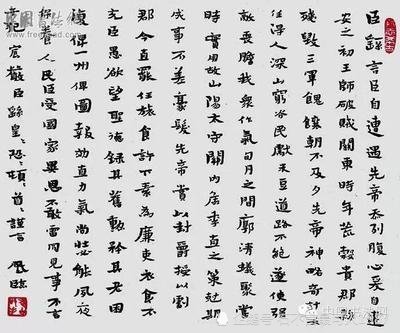 臣繇言臣自遭遇先帝忝列腹心爰自建
安之初王師破賊關東時年荒穀貴郡縣
殘毀三軍餽饟朝不及夕先帝神略奇計
任得人深山窮谷民獻米豆道路不絕遂使強
敵喪膽我衆作氣旬月之間廓清蟻聚當
時實用故山陽太守關內侯季直之策尅期
成事不差豪髮先帝賞以封爵授以劇
郡今直罷任旅食許下素為廉吏衣食不
充臣愚欲望聖德錄其舊勳矜其老困
復俾一州俾圖報效直力氣尚壯必能夙夜
保養人民臣受國家異恩不敢雷同見事不言
干犯宸嚴臣繇皇〻恐〻頓〻首〻謹言 臨